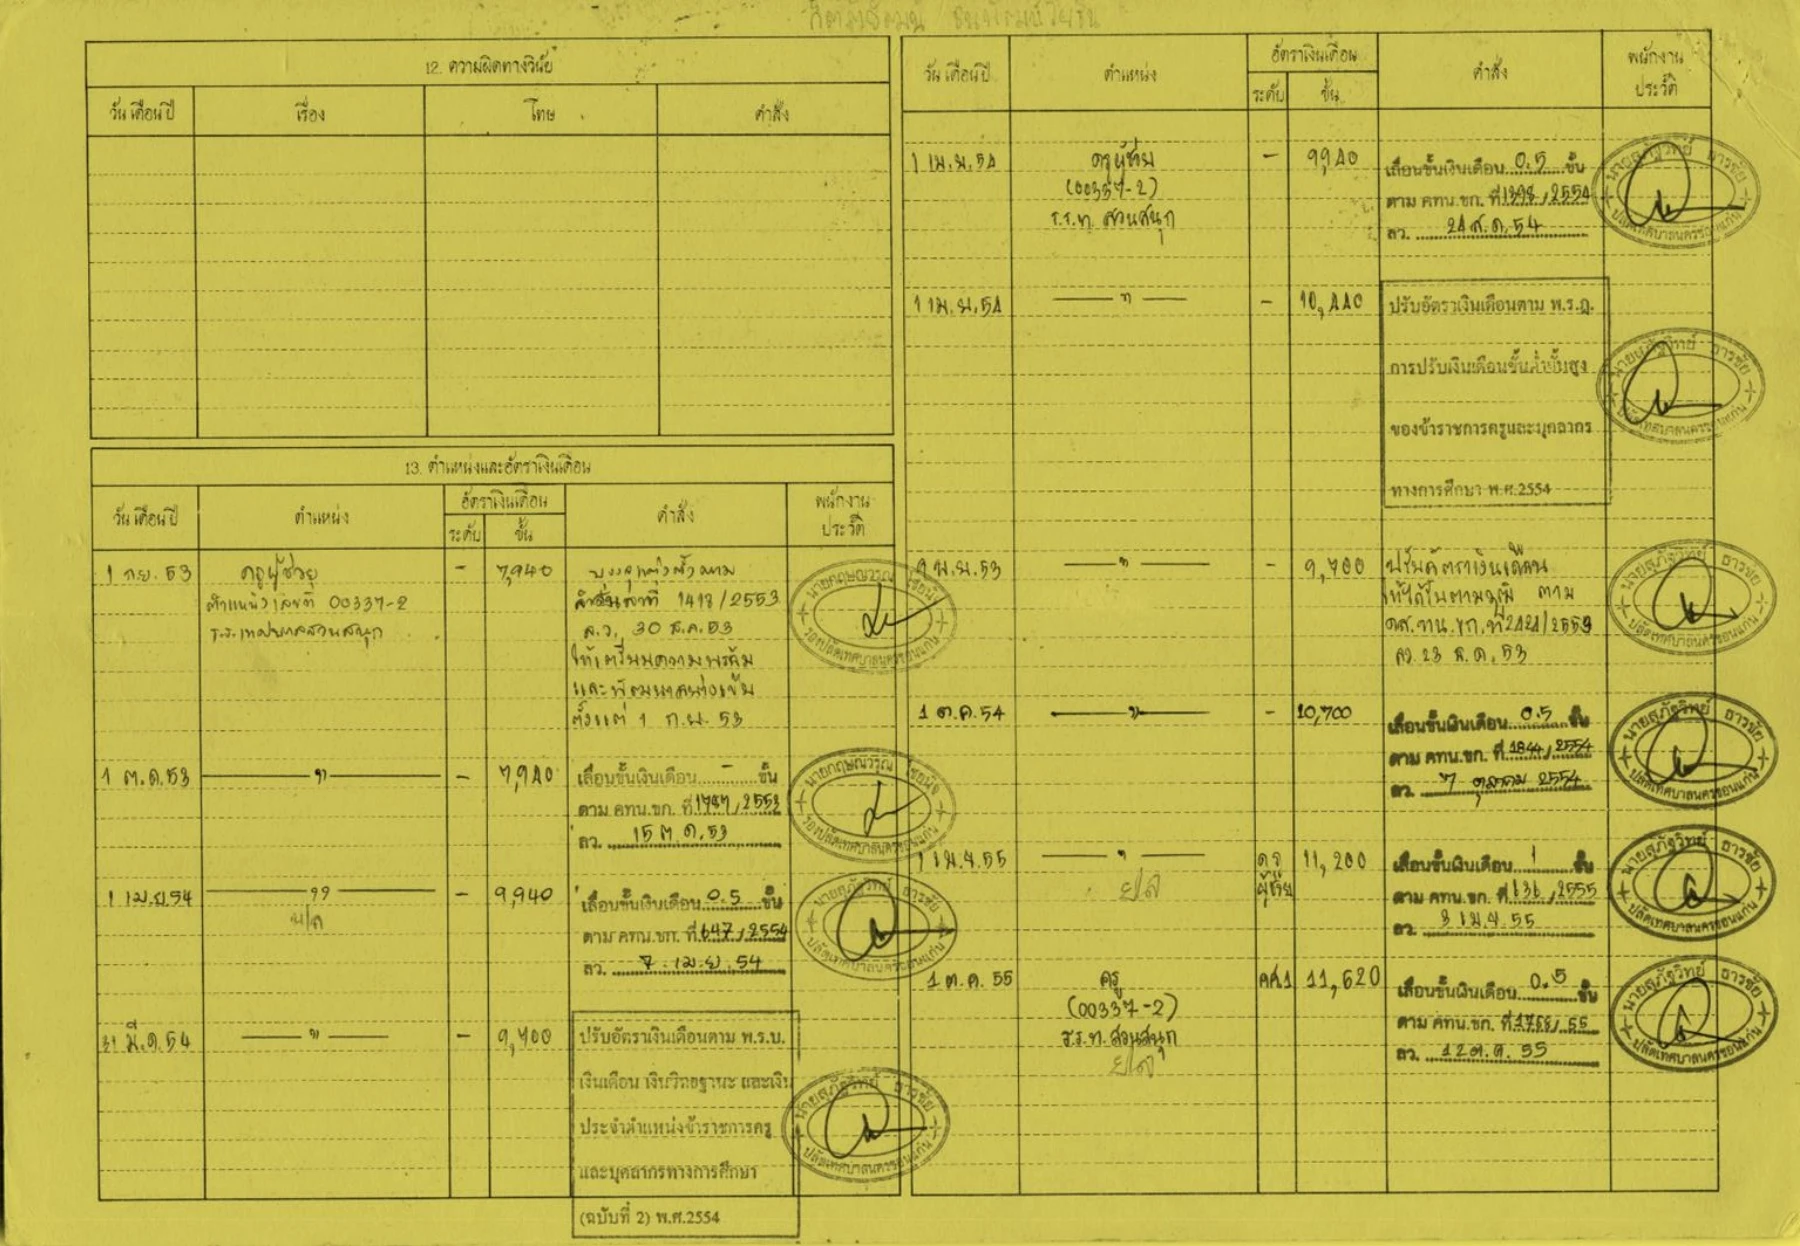 12. ความผิดทางวินัย
วัน เดือน ปี เรื่อง โทษ คำสั่ง
13. ตำแหน่งและอัตราเงินเดือน
วัน เดือน ปี ตำแหน่ง อัตราเงินเดือน คำสั่ง พนักงาน
ระดับ ขั้น ประวัติ
1 ก.ย. 53 ครูผู้ช่วย - 7,940
ตำแหน่งเลขที่ 00337-2 คำสั่ง ที่ 1418/2553
ร.ร.เทศบาลสวนสนุก ล.ว. 30 ส.ค. 53
ให้เตรียมความพร้อม
และพัฒนาอย่างเข้ม
ตั้งแต่ 1 ก.ย. 53
1 ต.ค. 53 " - 7,940 เลื่อนขั้นเงินเดือน - ขั้น
ตาม คทน.ขก. ที่
ลว. 15 ต.ค. 53
1 เม.ย. 54 " - 9,940 เลื่อนขั้นเงินเดือน 0.5 ขั้น
ตาม คทน.ขก. ที่ 647/2554
ลว. 7 เม.ย. 54
31 มี.ค. 54 " - 9,700 ปรับอัตราเงินเดือนตาม พ.ร.บ.
เงินเดือน เงินวิทยฐานะ และเงิน
ประจำตำแหน่งข้าราชการครู
และบุคลากรทางการศึกษา
(ฉบับที่ 2) พ.ศ.2554
วัน เดือน ปี ตำแหน่ง อัตราเงินเดือน คำสั่ง พนักงาน
ระดับ ขั้น ประวัติ
1 เม.ย. 54 ครูผู้ช่วย - 9940 เลื่อนขั้นเงินเดือน 0.5 ขั้น
(00337-2) ตาม คทน.ขก. ที่ 1398/2554
ร.ร.ท. สวนสนุก ลว. 24 ส.ค. 54
1 เม.ย. 54 " - 10,440 ปรับอัตราเงินเดือนตาม พ.ร.ฎ.
การปรับเงินเดือนขั้นต่ำขั้นสูง
ของข้าราชการครูและบุคลากร
ทางการศึกษา พ.ศ.2554
9 พ.ย. 53 " - 9,700 ปรับอัตราเงินเดือน
ให้ได้รับตามวุฒิ ตาม
คส.ทน.ขก. ที่ 2424/2553
ลว. 23 ธ.ค. 53
1 ต.ค. 54 " - 10,700 เลื่อนขั้นเงินเดือน 0.5 ขั้น
ตาม คทน.ขก. ที่ 1844/2554
ลว. 7 ตุลาคม 2554
1 เม.ย. 55 " ครูผู้ช่วย 11,200 เลื่อนขั้นเงินเดือน 1 ขั้น
ตาม คทน.ขก. ที่ 636/2555
ลว. 3 เม.ย. 55
1 ต.ค. 55 ครู คศ.1 11,620 เลื่อนขั้นเงินเดือน 0.5 ขั้น
(00337-2) ตาม คทน.ขก. ที่
ร.ร.ท. สวนสนุก ลว. 12 ต.ค. 55
นายสุภัฐวิทย์ ธารชัย
ปลัดเทศบาลนครขอนแก่น
รองปลัดเทศบาลนครขอนแก่น